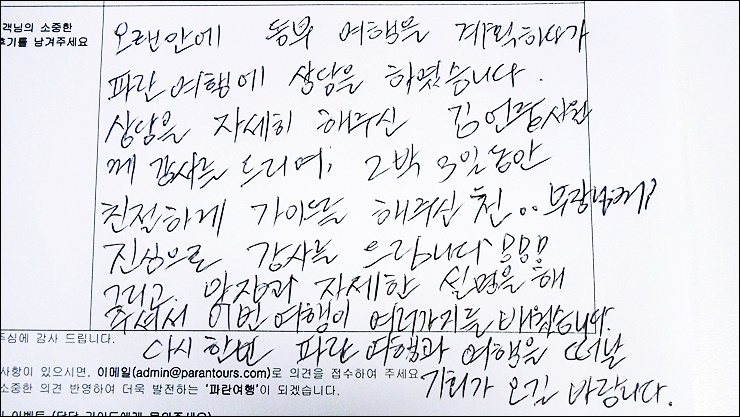 객님의 소중한
후기를 남겨주세요
오랜만에 동부 여행을 계획하다가
파란 여행에 상담을 하였습니다.
상담을 자세히 해주신 김 사원
께 감사를 드리며, 2박 3일동안
친절하게 가이드를 해주신 천.. 부장님께
진심으로 감사를 드립니다!!!
그리고, 안전과 자세한 설명을 해
주셔서 이번 여행이 여러가지를 배웠습니다.
다시 한번 파란 여행과 여행을 떠날
기회가 오길 바랍니다.
주심에 감사 드립니다.
사항이 있으시면, 이메일(admin@parantours.com)로 의견을 접수하여 주세요
소중한 의견 반영하여 더욱 발전하는 '파란여행'이 되겠습니다.